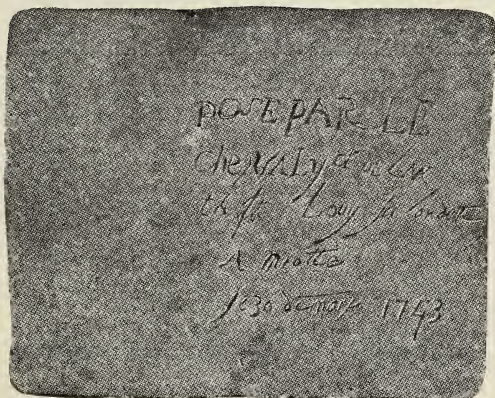 POSE PAR LE
Chevalyet de
Louy la Londette
A Miotte
le 30 de mars 1743